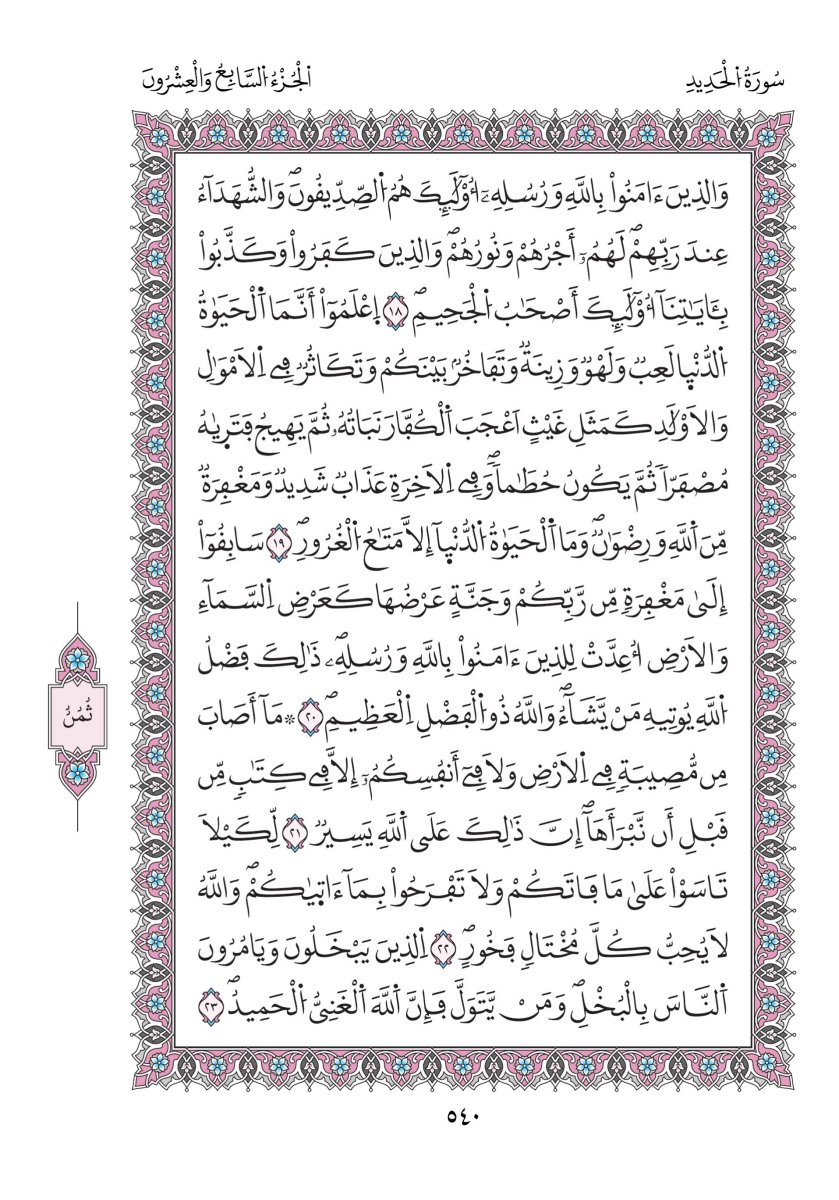 سُورَةُ اُ۬لْحَدِيدِ
اَ۬لْجُزْءُ اُ۬لسَّابِعُ وَالْعِشْرُونَ
وَالذِينَ ءَامَنُواْ بِاللَّهِ وَرُسُلِهِۦٓ أُوْلَٰٓئِكَ هُمُ اُ۬لصِّدِّيقُونَۖ وَالشُّهَدَآءُ
عِندَ رَبِّهِمْۖ لَهُمُۥٓ أَجْرُهُمْ وَنُورُهُمْۖ وَالذِينَ كَفَرُواْ وَكَذَّبُواْ
بِـَٔايَٰتِنَآ أُوْلَٰٓئِكَ أَصْحَٰبُ اُ۬لْجَحِيمِۖ ١٨ اِ۪عْلَمُوٓاْ أَنَّمَا اَ۬لْحَيَوٰةُ
اُ۬لدُّنْي۪ا لَعِبٞ وَلَهْوٞ وَزِينَةٞ وَتَفَاخُرُۢ بَيْنَكُمْ وَتَكَاثُرٞ فِے اِ۬لَامْوَٰلِ
وَالَاوْلَٰدِ كَمَثَلِ غَيْثٍ اَعْجَبَ اَ۬لْكُفَّارَ نَبَاتُهُۥ ثُمَّ يَهِيجُ فَتَر۪يٰهُ
مُصْفَرّاٗ ثُمَّ يَكُونُ حُطَٰماٗۖ وَفِے اِ۬لَاخِرَةِ عَذَابٞ شَدِيدٞ وَمَغْفِرَةٞ
مِّنَ اَ۬للَّهِ وَرِضْوَٰنٞۖ وَمَا اَ۬لْحَيَوٰةُ اُ۬لدُّنْي۪آ إِلَّا مَتَٰعُ اُ۬لْغُرُورِۖ ١٩ سَابِقُوٓاْ
إِلَىٰ مَغْفِرَةٖ مِّن رَّبِّكُمْ وَجَنَّةٍ عَرْضُهَا كَعَرْضِ اِ۬لسَّمَآءِ
وَالَارْضِ أُعِدَّتْ لِلذِينَ ءَامَنُواْ بِاللَّهِ وَرُسُلِهِۦۖ ذَٰلِكَ فَضْلُ
اُ۬للَّهِ يُوتِيهِ مَنْ يَّشَآءُۖ وَاللَّهُ ذُو اُ۬لْفَضْلِ اِ۬لْعَظِيمِۖ ٢٠ ۞ مَآ أَصَابَ
مِن مُّصِيبَةٖ فِے اِ۬لَارْضِ وَلَا فِےٓ أَنفُسِكُمُۥٓ إِلَّا فِے كِتَٰبٖ مِّن
قَبْلِ أَن نَّبْرَأَهَآۖ إِنَّ ذَٰلِكَ عَلَى اَ۬للَّهِ يَسِيرٞ ٢١ لِّكَيْلَا
تَاسَوْاْ عَلَىٰ مَا فَاتَكُمْ وَلَا تَفْرَحُواْ بِمَآ ءَات۪يٰكُمْۖ وَاللَّهُ
لَا يُحِبُّ كُلَّ مُخْتَالٖ فَخُورٍۖ ٢٢ اِ۬لذِينَ يَبْخَلُونَ وَيَامُرُونَ
اَ۬لنَّاسَ بِالْبُخْلِۖ وَمَنْ يَّتَوَلَّ فَإِنَّ اَ۬للَّهَ اَ۬لْغَنِيُّ اُ۬لْحَمِيدُۖ ٢٣
ثُمُنُ
٥٤٠